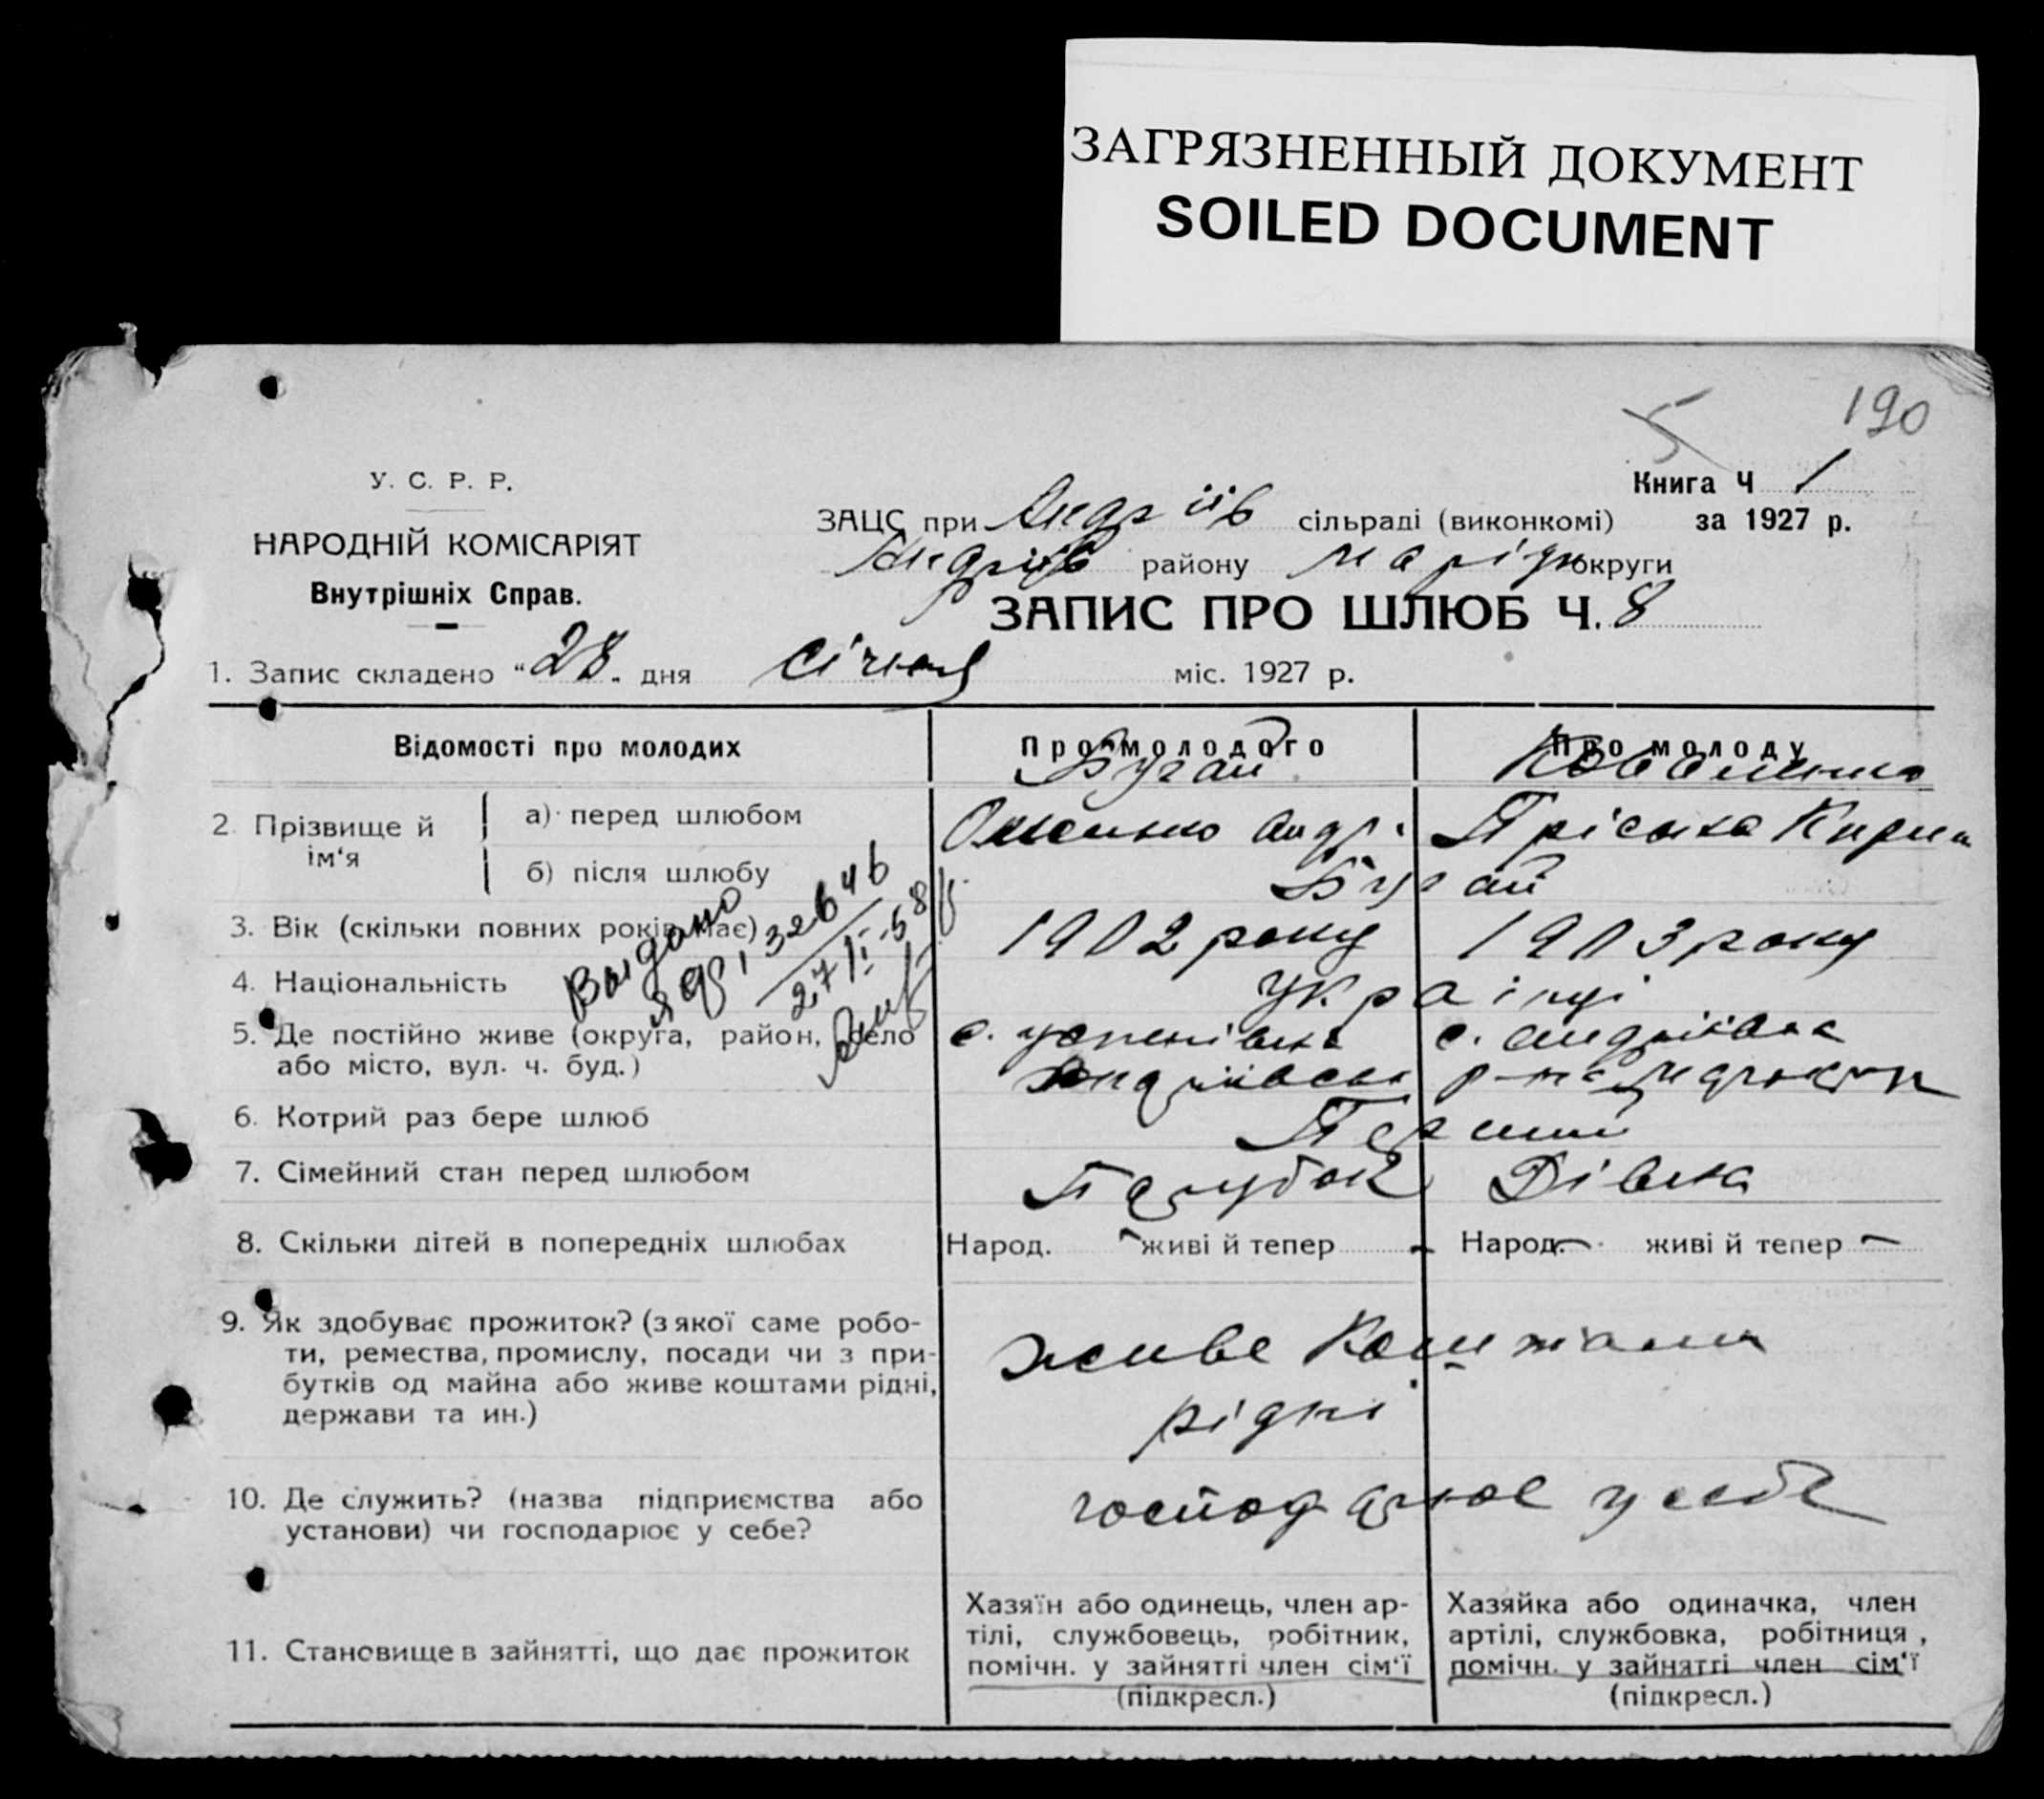 ЗАГРЯЗНЕННЫЙ ДОКУМЕНТ
SOILED DOCUMENT
5 190
У. С. Р. Р.
НАРОДНІЙ КОМІСАРІЯТ
Внутрішніх Справ.
Книга Ч 1
за 1927 р.
ЗАЦС при Андріїв сільраді (виконкомі)
Андріїв району Маріуп округи
ЗАПИС ПРО ШЛЮБ Ч. 8
1. Запис складено "28" дня січня міс. 1927 р.
Відомості про молодих Про молодого Про молоду
Бугай Коваленко
2. Прізвище й ім‘я
а) перед шлюбом Андр. Пріська Кирил
б) після шлюбу Бугай
3. Вік (скільки повних років має) 1902 року 1903 року
4. Національність Українці
5. Де постійно живе (округа, район, село с. Успенівка с. Андріївка
або місто, вул. ч. буд.) Андріївськ
Выдано
27/II-58
6. Котрий раз бере шлюб Перший
7. Сімейний стан перед шлюбом Парубок Дівка
8. Скільки дітей в попередніх шлюбах Народ. – живі й тепер – Народ. – живі й тепер –
9. Як здобуває прожиток? (з якої саме робо-
ти, ремества, промислу, посади чи з при-
бутків од майна або живе коштами рідні,
держави та ин.)
живе коштами
рідні
10. Де служить? (назва підприємства або
установи) чи господарює у себе?
господарює у себе
11. Становище в зайнятті, що дає прожиток
Хазяїн або одинець, член ар-
тілі, службовець, робітник,
помічн. у зайнятті член сім‘ї
(підкресл.)
Хазяйка або одиначка, член
артілі, службовка, робітниця,
помічн. у зайнятті член сім‘ї
(підкресл.)